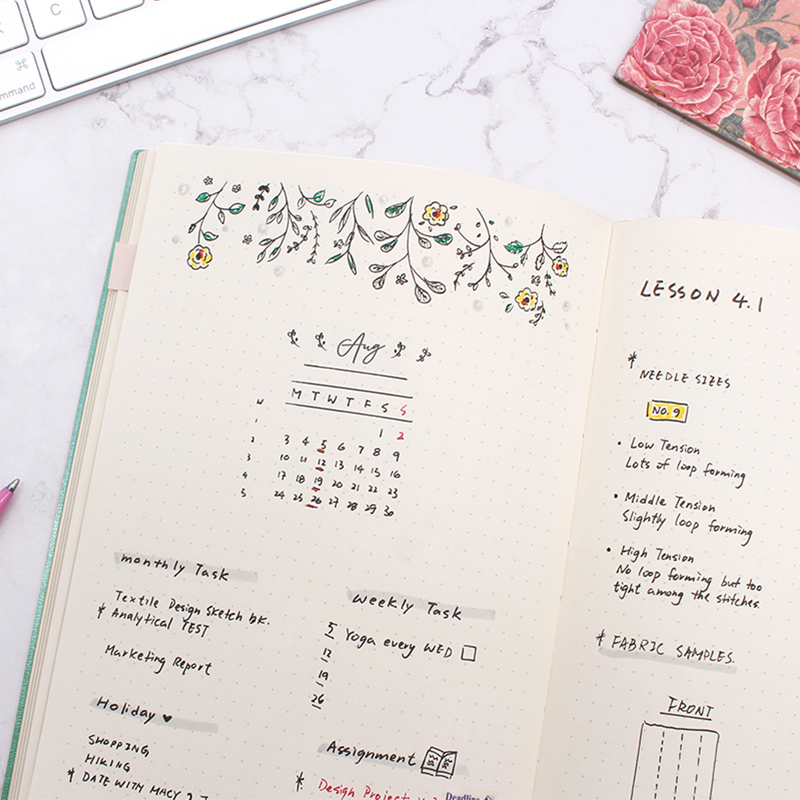 C
⌘
command
Aug
M T W T F S S
W
1 1 2
2 3 4 5 6 7 8 9
3 10 11 12 13 14 15 16
4 17 18 19 20 21 22 23
5 24 25 26 27 28 29 30
monthly Task
Textile Design Sketch bk.
* Analytical TEST
Marketing Report
Holiday ♥
SHOPPING
HIKING
* DATE WITH MACY
Weekly Task
5 Yoga every WED □
12
19
26
Assignment
* Design Project
Deadline
LESSON 4.1
* NEEDLE SIZES
NO. 9
• Low Tension
Lots of loop forming
• Middle Tension
Slightly loop forming
• High Tension
No loop forming but too
tight among the stitches.
* FABRIC SAMPLES.
FRONT